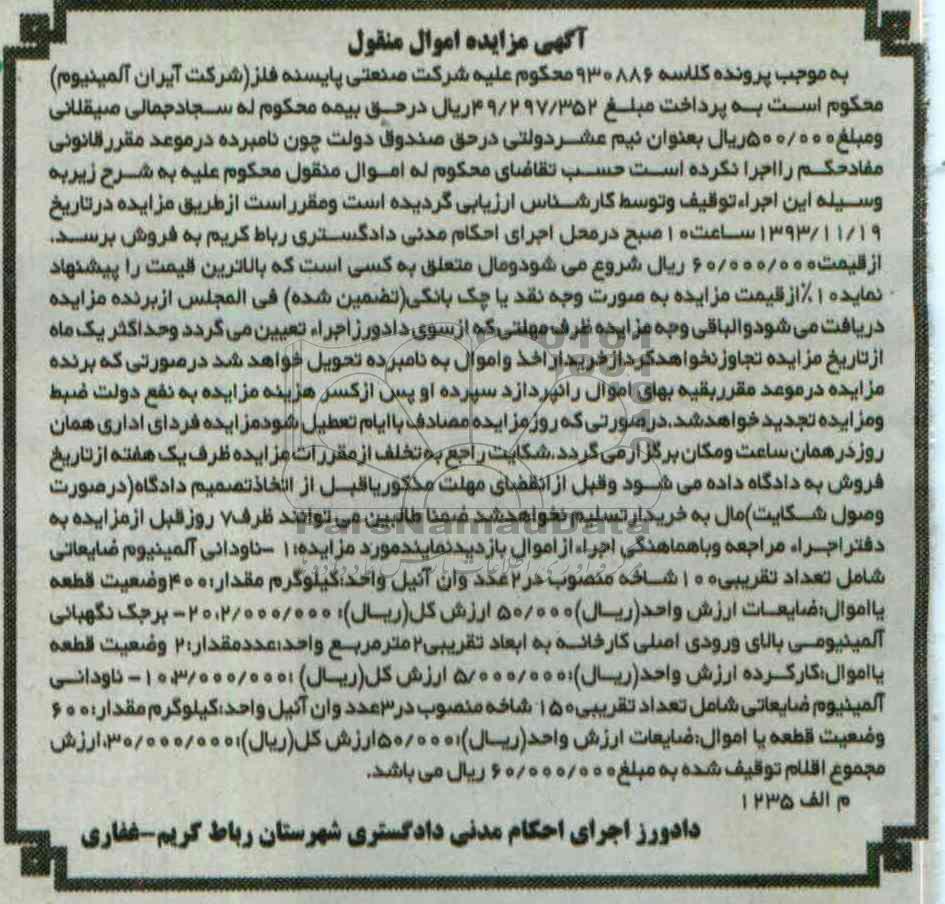 آگهی مزایده اموال منقول
به موجب پرونده کلاسه ۹۳۰۸۸۶ محکوم علیه شرکت صنعتی پایسنه فلز(شرکت آیران آلمینیوم)
محکوم است به پرداخت مبلغ ۴۹/۲۹۷/۳۵۲ریال درحق بیمه محکوم له سجادجمالی صیقلانی
ومبلغ۵۰۰/۰۰۰ریال بعنوان نیم عشردولتی درحق صندوق دولت چون نامبرده درموعد مقررقانونی
مفادحکم رااجرا نکرده است حسب تقاضای محکوم له اموال منقول محکوم علیه به شرح زیربه
وسیله این اجراء،توقیف وتوسط کارشناس ارزیابی گردیده است ومقرراست ازطریق مزایده درتاریخ
۱۳۹۳/۱۱/۱۹ساعت۱۰صبح درمحل اجرای احکام مدنی دادگستری رباط کریم به فروش برسد.
ازقیمت۶۰/۰۰۰/۰۰۰ ریال شروع می شودومال متعلق به کسی است که بالاترین قیمت را پیشنهاد
نماید۱۰٪ازقیمت مزایده به صورت وجه نقد یا چک بانکی(تضمین شده) فی المجلس ازبرنده مزایده
دریافت می شودوالباقی وجه مزایده ظرف مهلتی که ازسوی دادورزاجراء تعیین می گردد وحداکثر یک ماه
ازتاریخ مزایده تجاوزنخواهدکردازخریداراخذ واموال به نامبرده تحویل خواهد شد درصورتی که برنده
مزایده درموعد مقرربقیه بهای اموال رانپردازد سپرده او پس ازکسر هزینه مزایده به نفع دولت ضبط
ومزایده تجدید خواهدشد.درصورتی که روزمزایده مصادف باایام تعطیل شودمزایده فردای اداری همان
روزدرهمان ساعت ومکان برگزارمی گردد.شکایت راجع به تخلف ازمقررات مزایده ظرف یک هفته ازتاریخ
فروش به دادگاه داده می شود وقبل ازانقضای مهلت مذکوریاقبل از اتخاذتصمیم دادگاه(درصورت
وصول شکایت)مال به خریدارتسلیم نخواهدشد ضمنا طالبین می توانند ظرف۷ روزقبل ازمزایده به
دفتراجراء مراجعه وباهماهنگی اجراء ازاموال بازدیدنمایندموردمزایده:۱ -ناودانی آلمینیوم ضایعاتی
شامل تعداد تقریبی۱۰۰شاخه منصوب در۲عدد وان آئیل واحد:کیلوگرم مقدار:۴۰۰وضعیت قطعه
یااموال:ضایعات ارزش واحد(ریال)۵۰/۰۰۰ ارزش کل(ریال):۲۰،۲/۰۰۰/۰۰۰- برجک نگهبانی
آلمینیومی بالای ورودی اصلی کارخانه به ابعاد تقریبی۲مترمربع واحد:عددمقدار:۲ وضعیت قطعه
یااموال:کارکرده ارزش واحد(ریال):۵/۰۰۰/۰۰۰ ارزش کل(ریال) :۱۰،۳/۰۰۰/۰۰۰- ناودانی
آلمینیوم ضایعاتی شامل تعداد تقریبی۱۵۰ شاخه منصوب در۳عدد وان آئیل واحد:کیلوگرم مقدار:۶۰۰
وضعیت قطعه یا اموال:ضایعات ارزش واحد(ریال):۵۰/۰۰۰ارزش کل(ریال):۳۰/۰۰۰/۰۰۰،ارزش
مجموع اقلام توقیف شده به مبلغ۶۰/۰۰۰/۰۰۰ ریال می باشد.
م الف ۱۲۳۵
دادورز اجرای احکام مدنی دادگستری شهرستان رباط کریم-غفاری
ParsNamadData